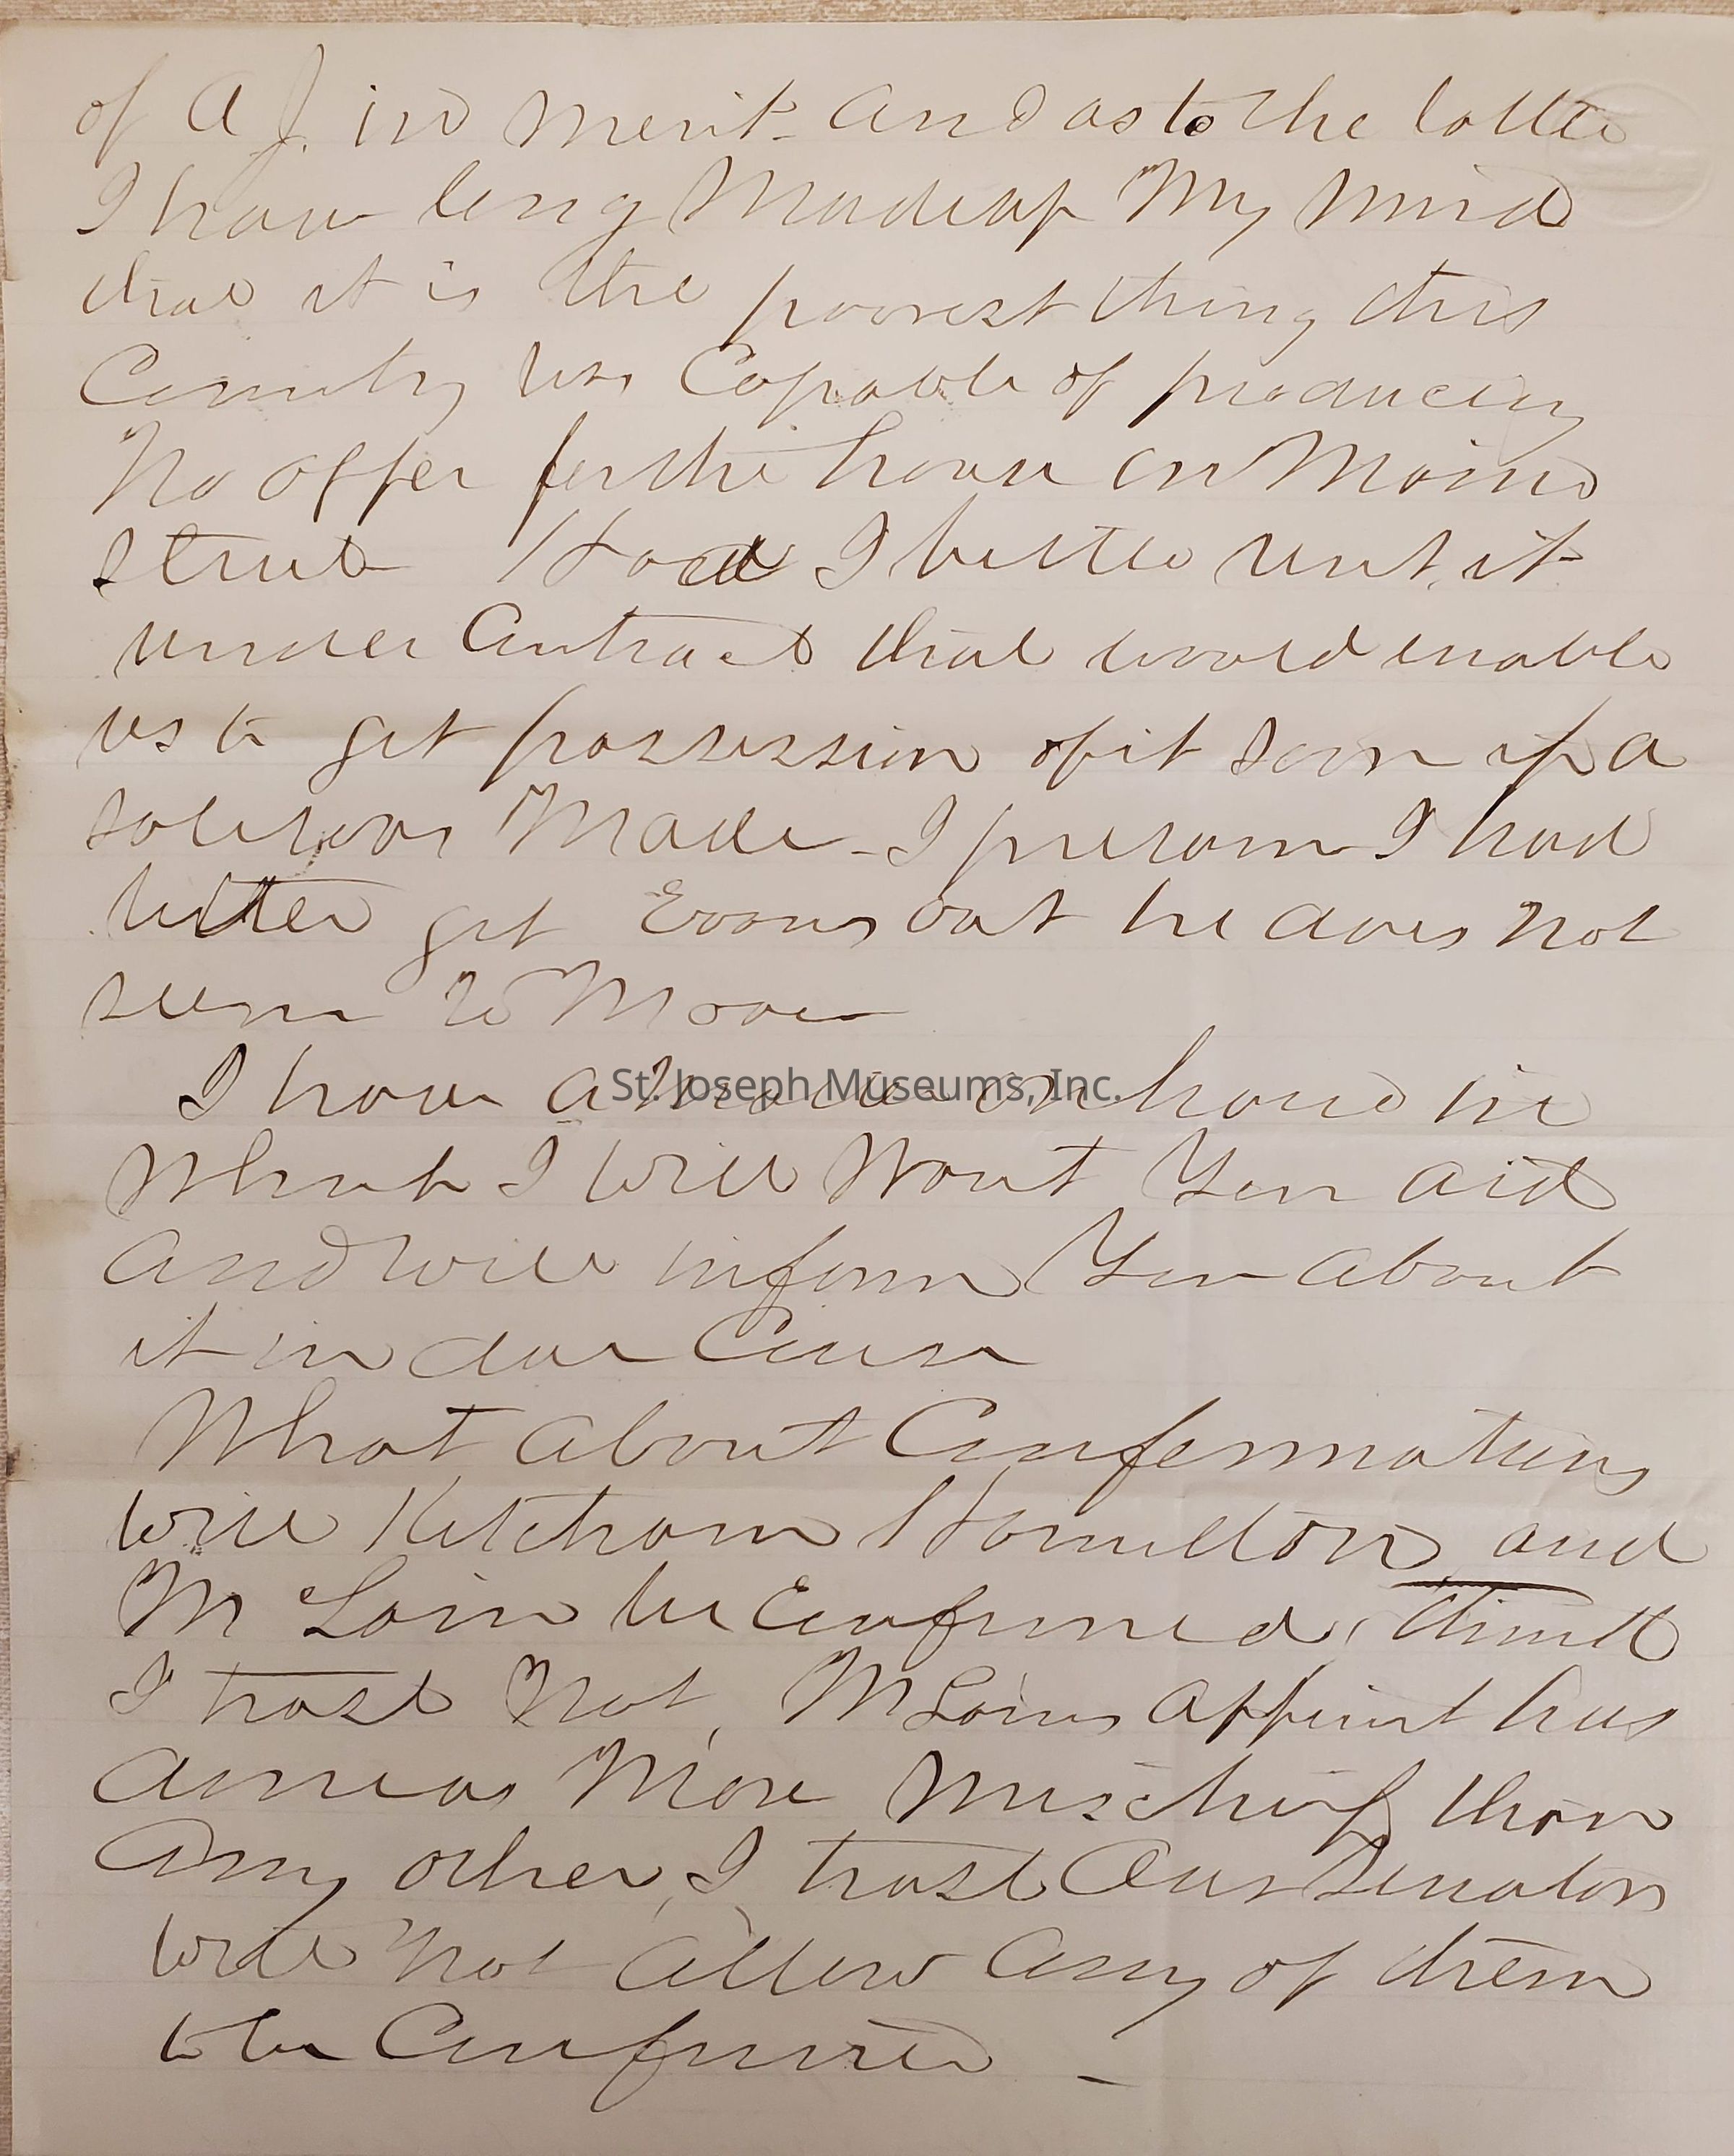 of A J. in merit - and as to the latter
I have long Made up My Mind
that it is the poorest thing this
Country was Capable of producing
No offer for the house on Main
Street Had I better rent it
under Contract that would enable
us to get possession of it soon if a
sale was Made - I presume I had
better get Evans out he does not
seem to Move
I have a trade on hand in
Which I will Want Your aid
and will inform You about
it in due Course
What about Confirmations
will Ketcham Hamilton and
McLain be Confirmed,
I trust Not, McLains appoint has
done us More Mischief than
Any other, I trust Our Senators
will Not allow any of them
to be Confirmed -
St. Joseph Museums, Inc.